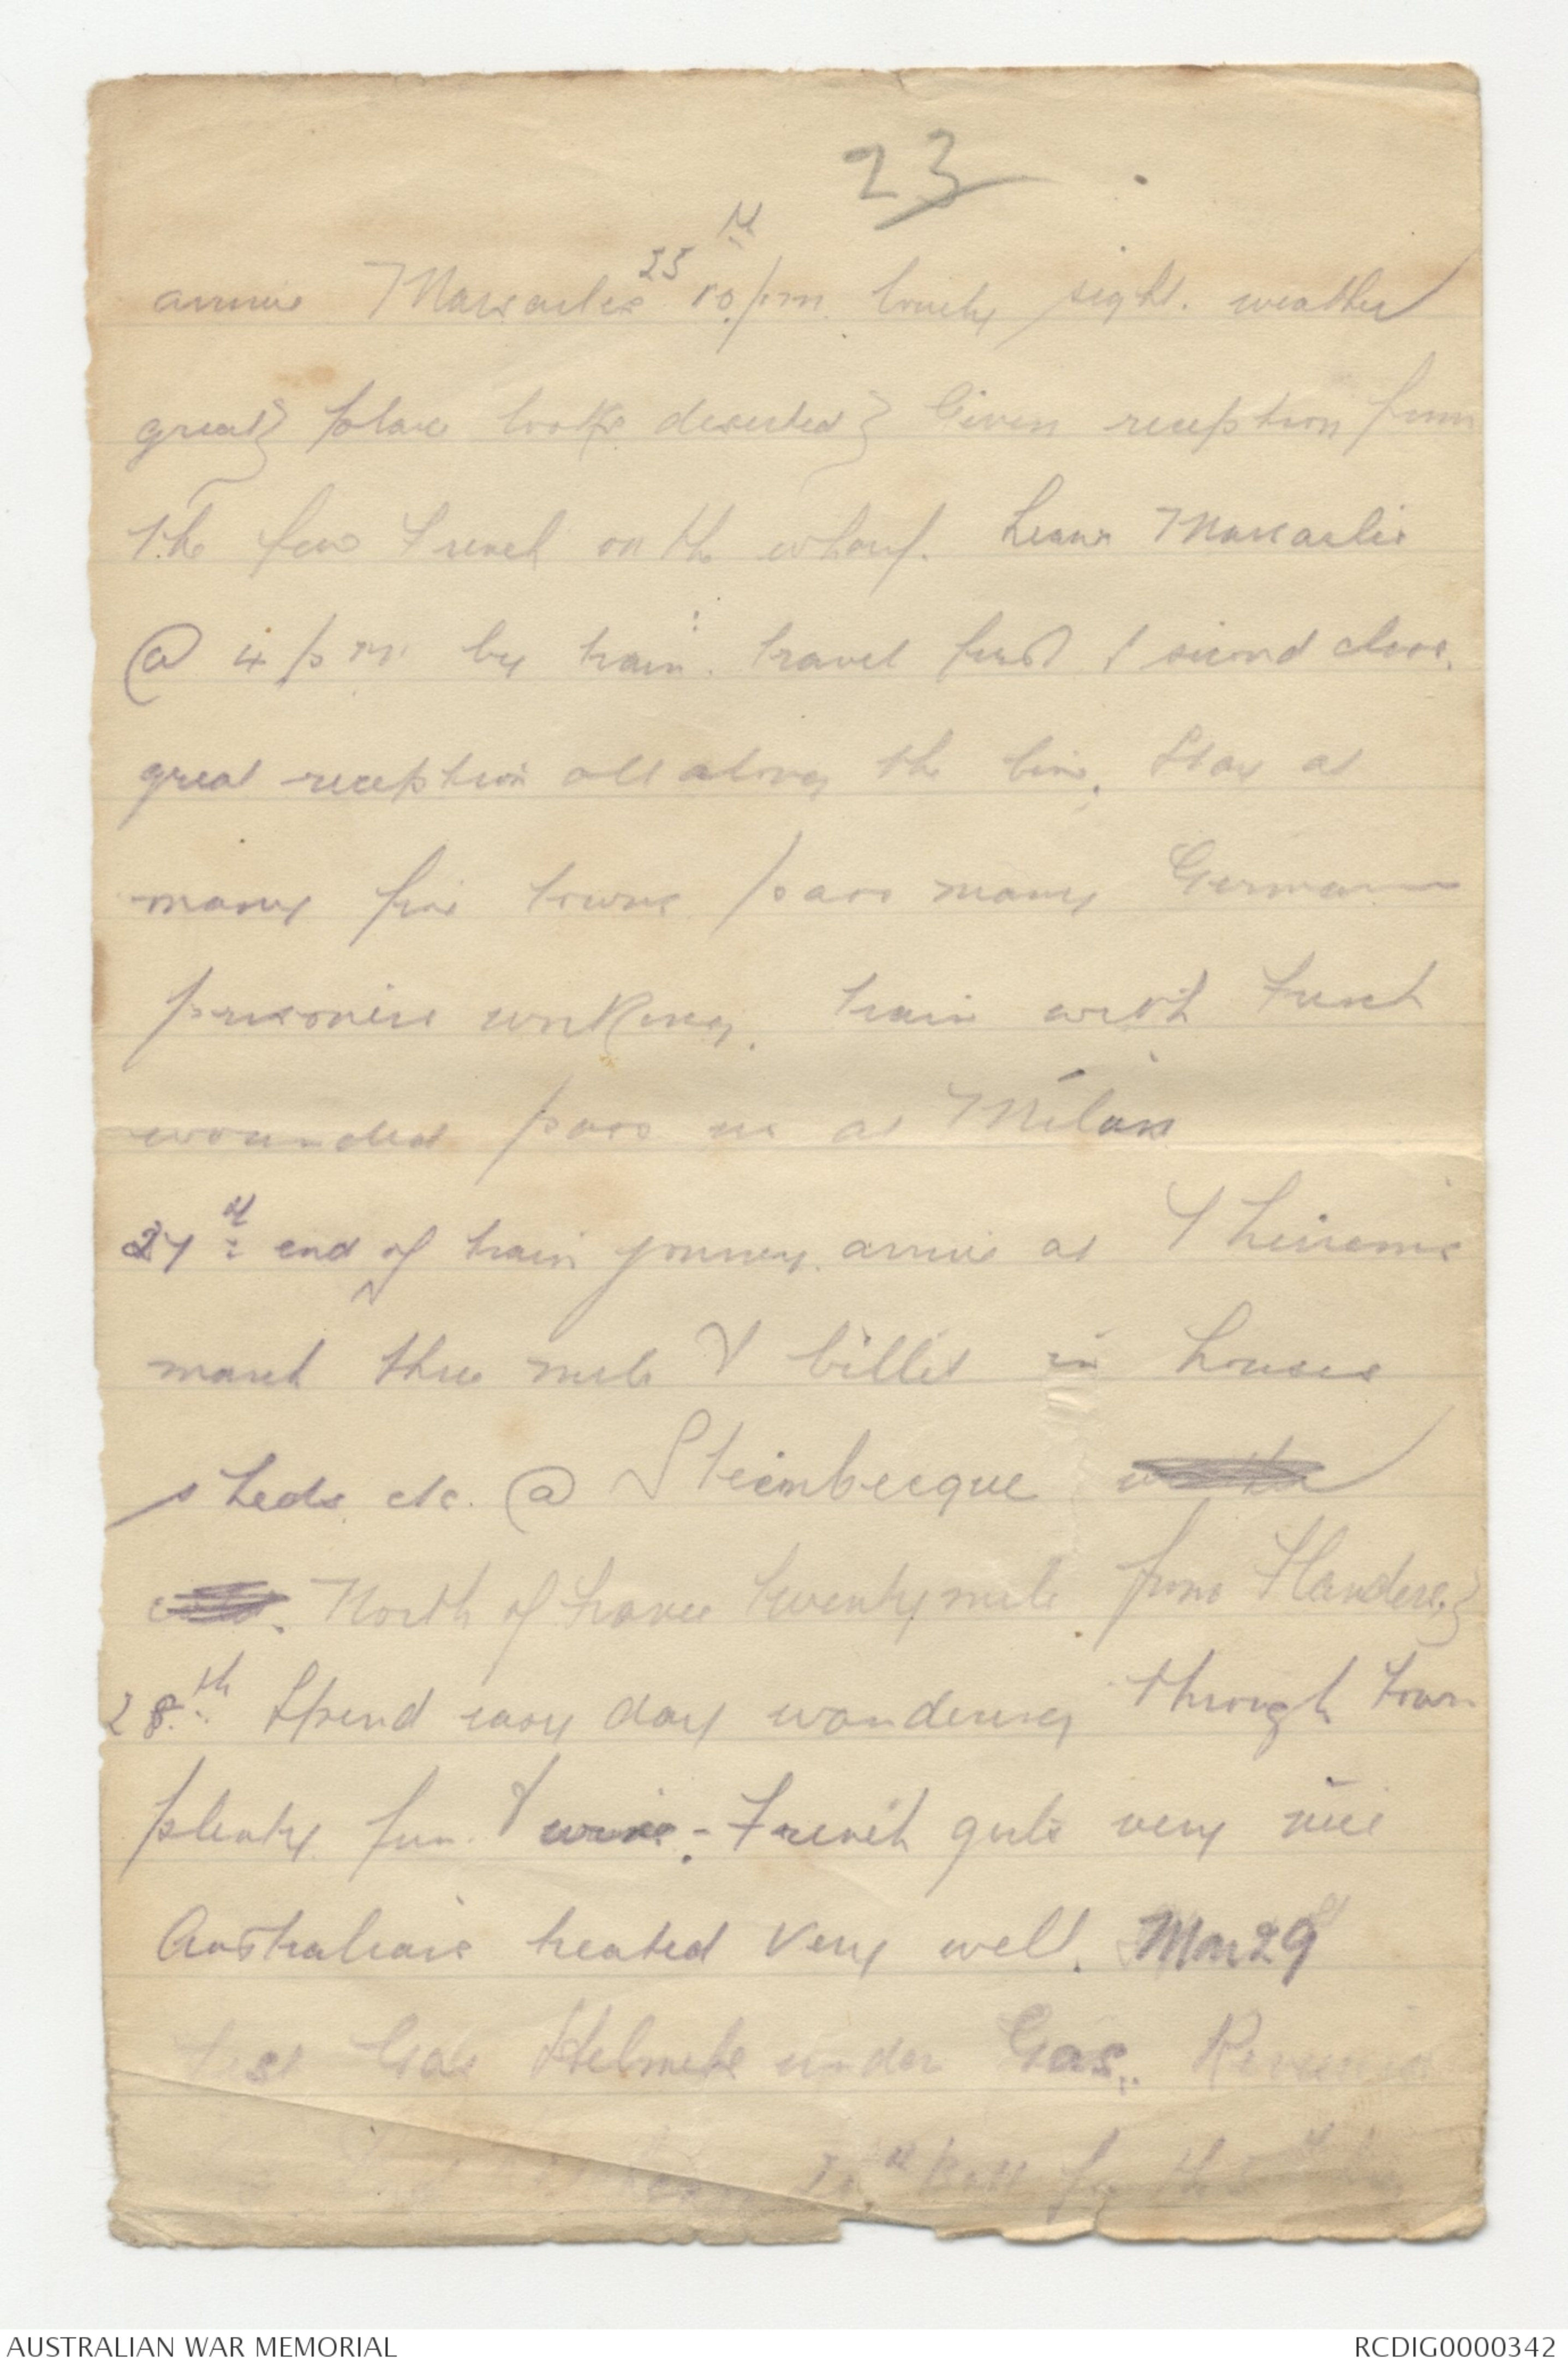 23
arrive Marsailes 25th 10 pm. lovely sight. weather
great} place looks deserted} Given reception from
the few French on the wharf. Leave Marsailes
@ 4 pm by train. travel first & second class.
great reception all along the line. Stay at
many fine towns pass many German
prisoners working. train with French
wounded pass us at Milan
27th end of train journey. arrive at Thiennes
march three mile & billet in houses
sheds etc. @ Steinbecque
North of France twenty mile from Flanders.}
28th Spend easy day wandering through town
plenty fun & wine - French girls very nice
Australians treated very well. Mar 29
test Gas Helmets under Gas.
Batt for the
AUSTRALIAN WAR MEMORIAL
RCDIG0000342